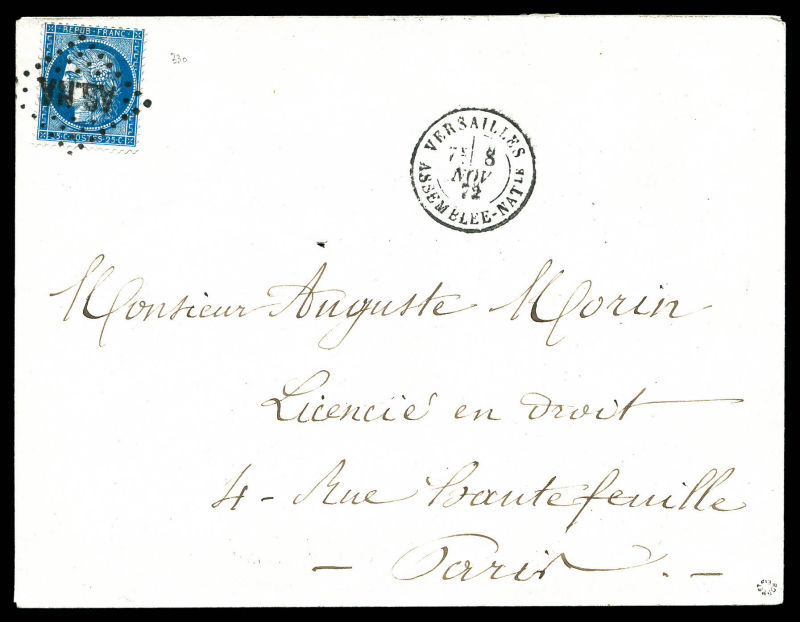 REPUB·FRANC·
330
AS.NA
25 C POSTES 25 C
VERSAILLES
7E 8
NOV
72
ASSEMBLEE-NATLE
Monsieur Auguste Morin
Licencié en droit
4 - Rue Hautefeuille
- Paris. -